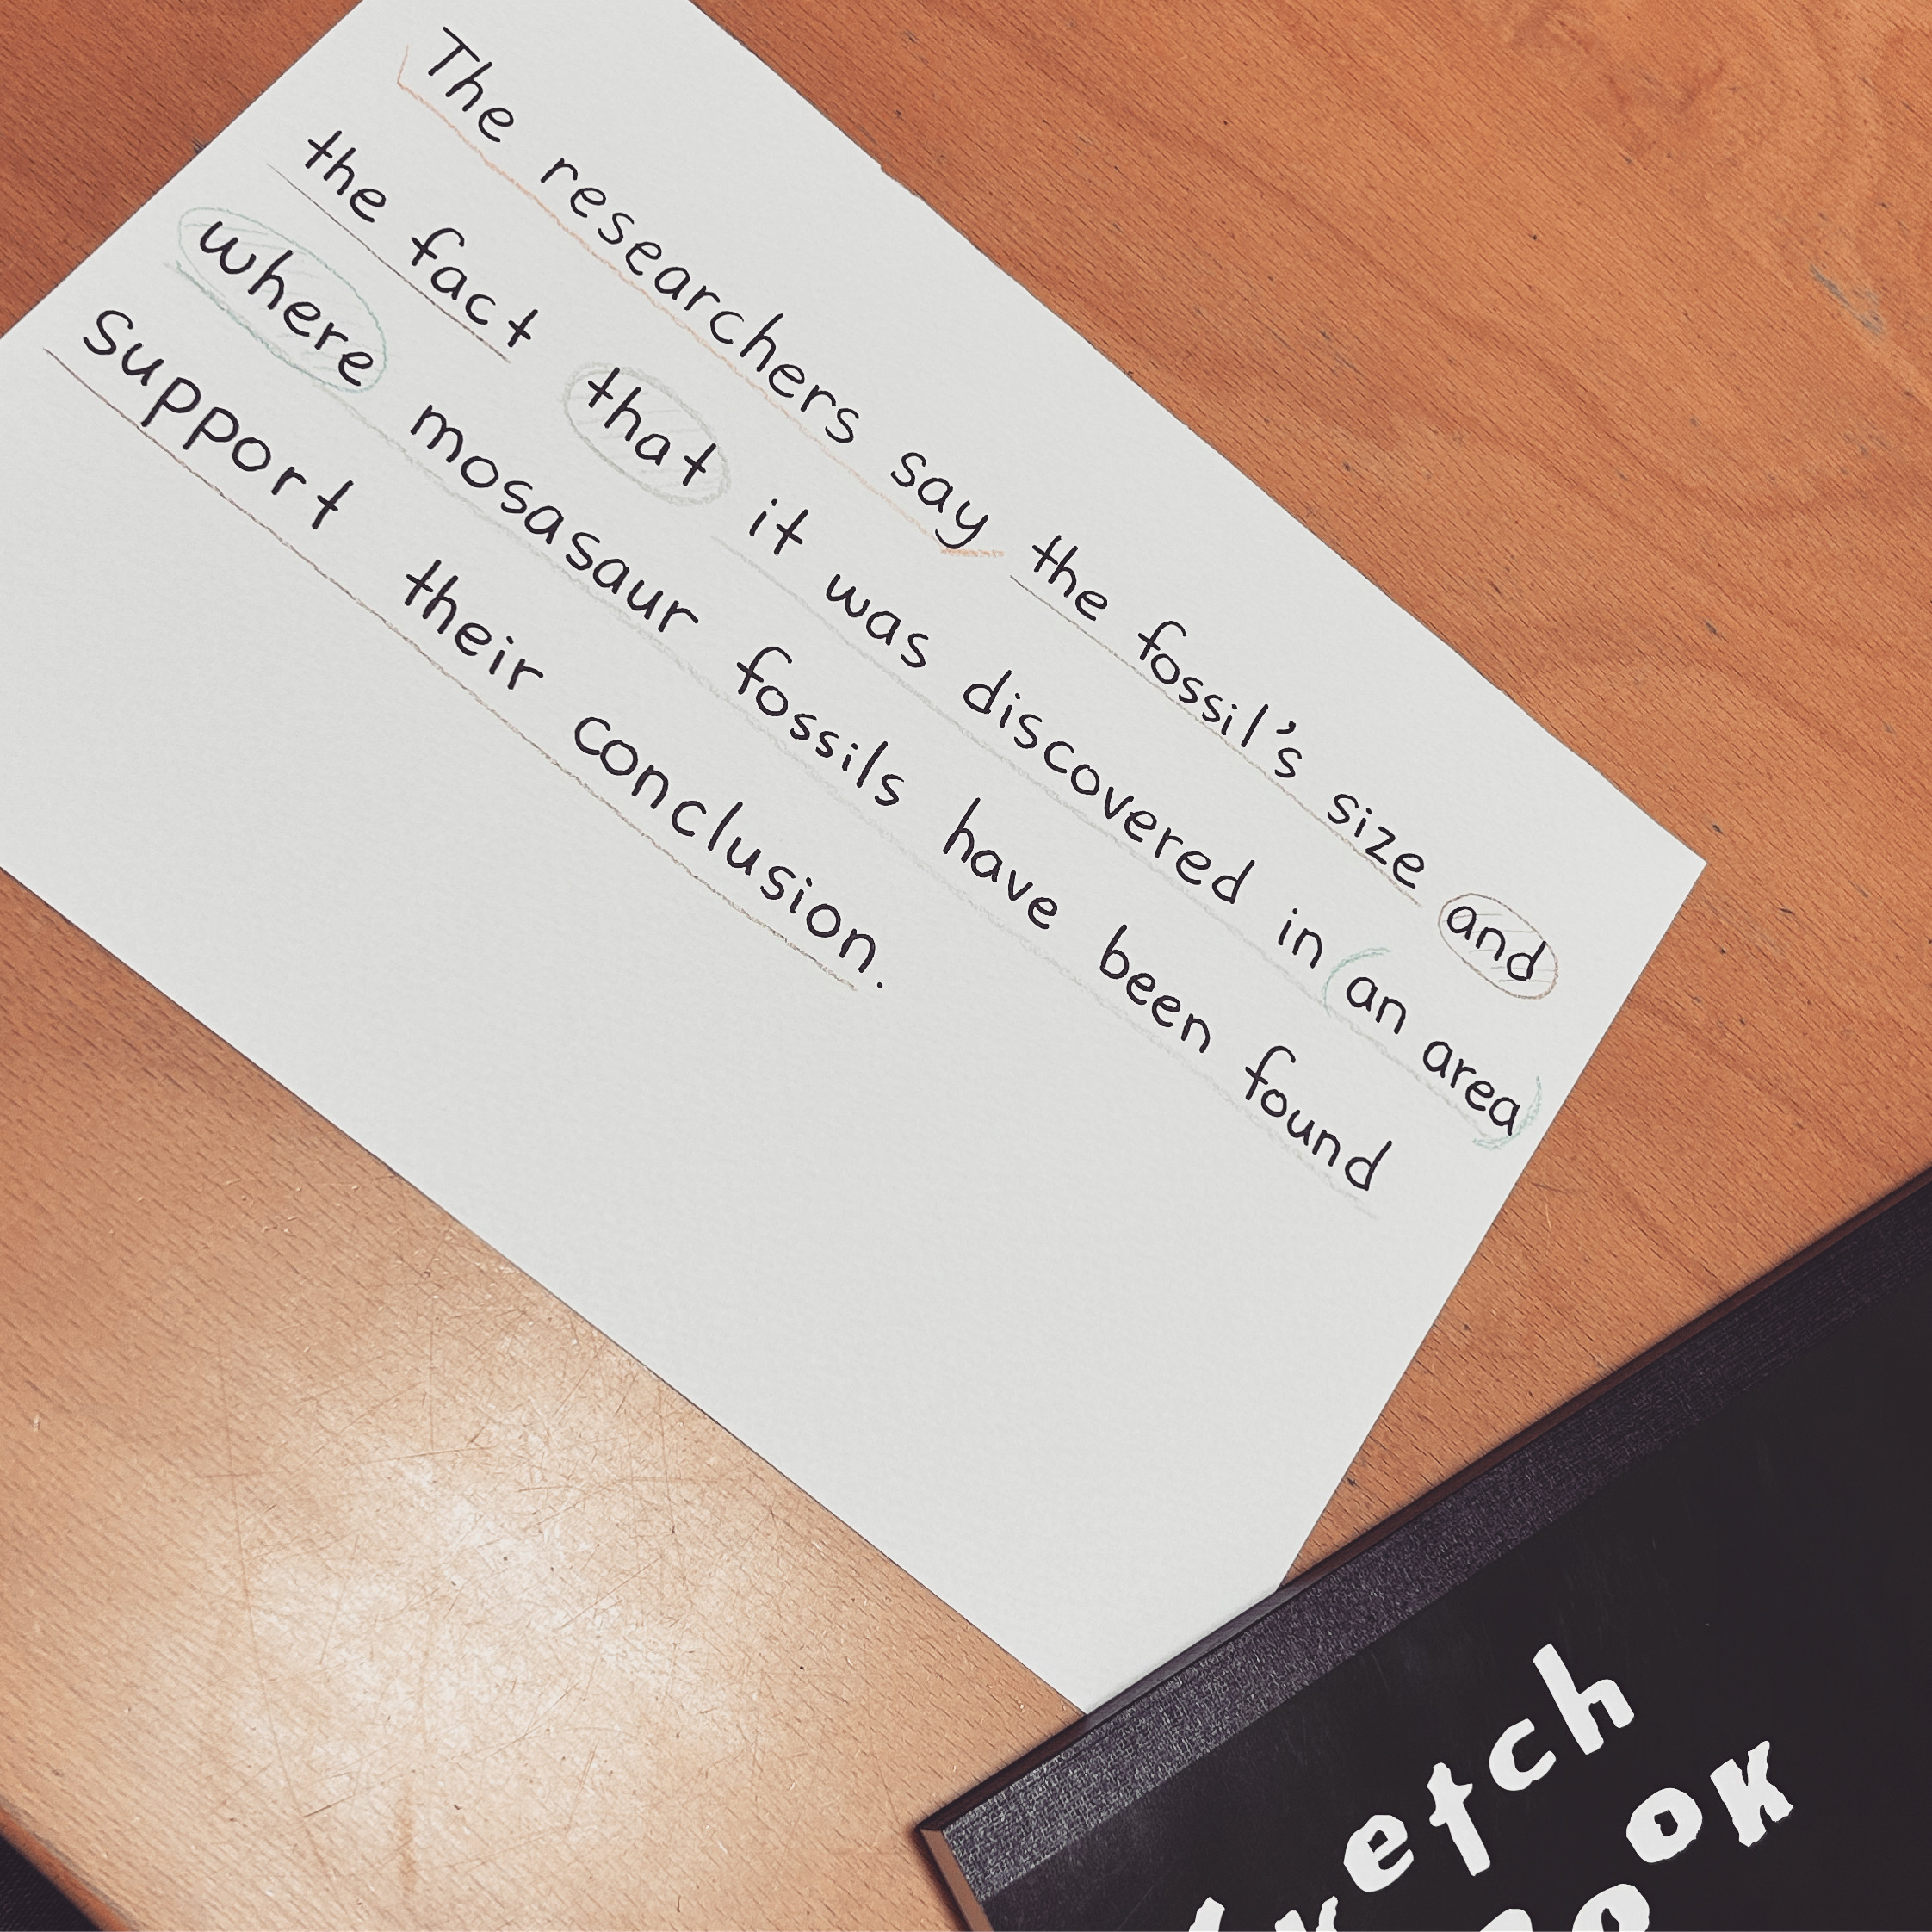 The researchers say the fossil's size and
the fact that it was discovered in an area
where mosasaur fossils have been found
support their conclusion.